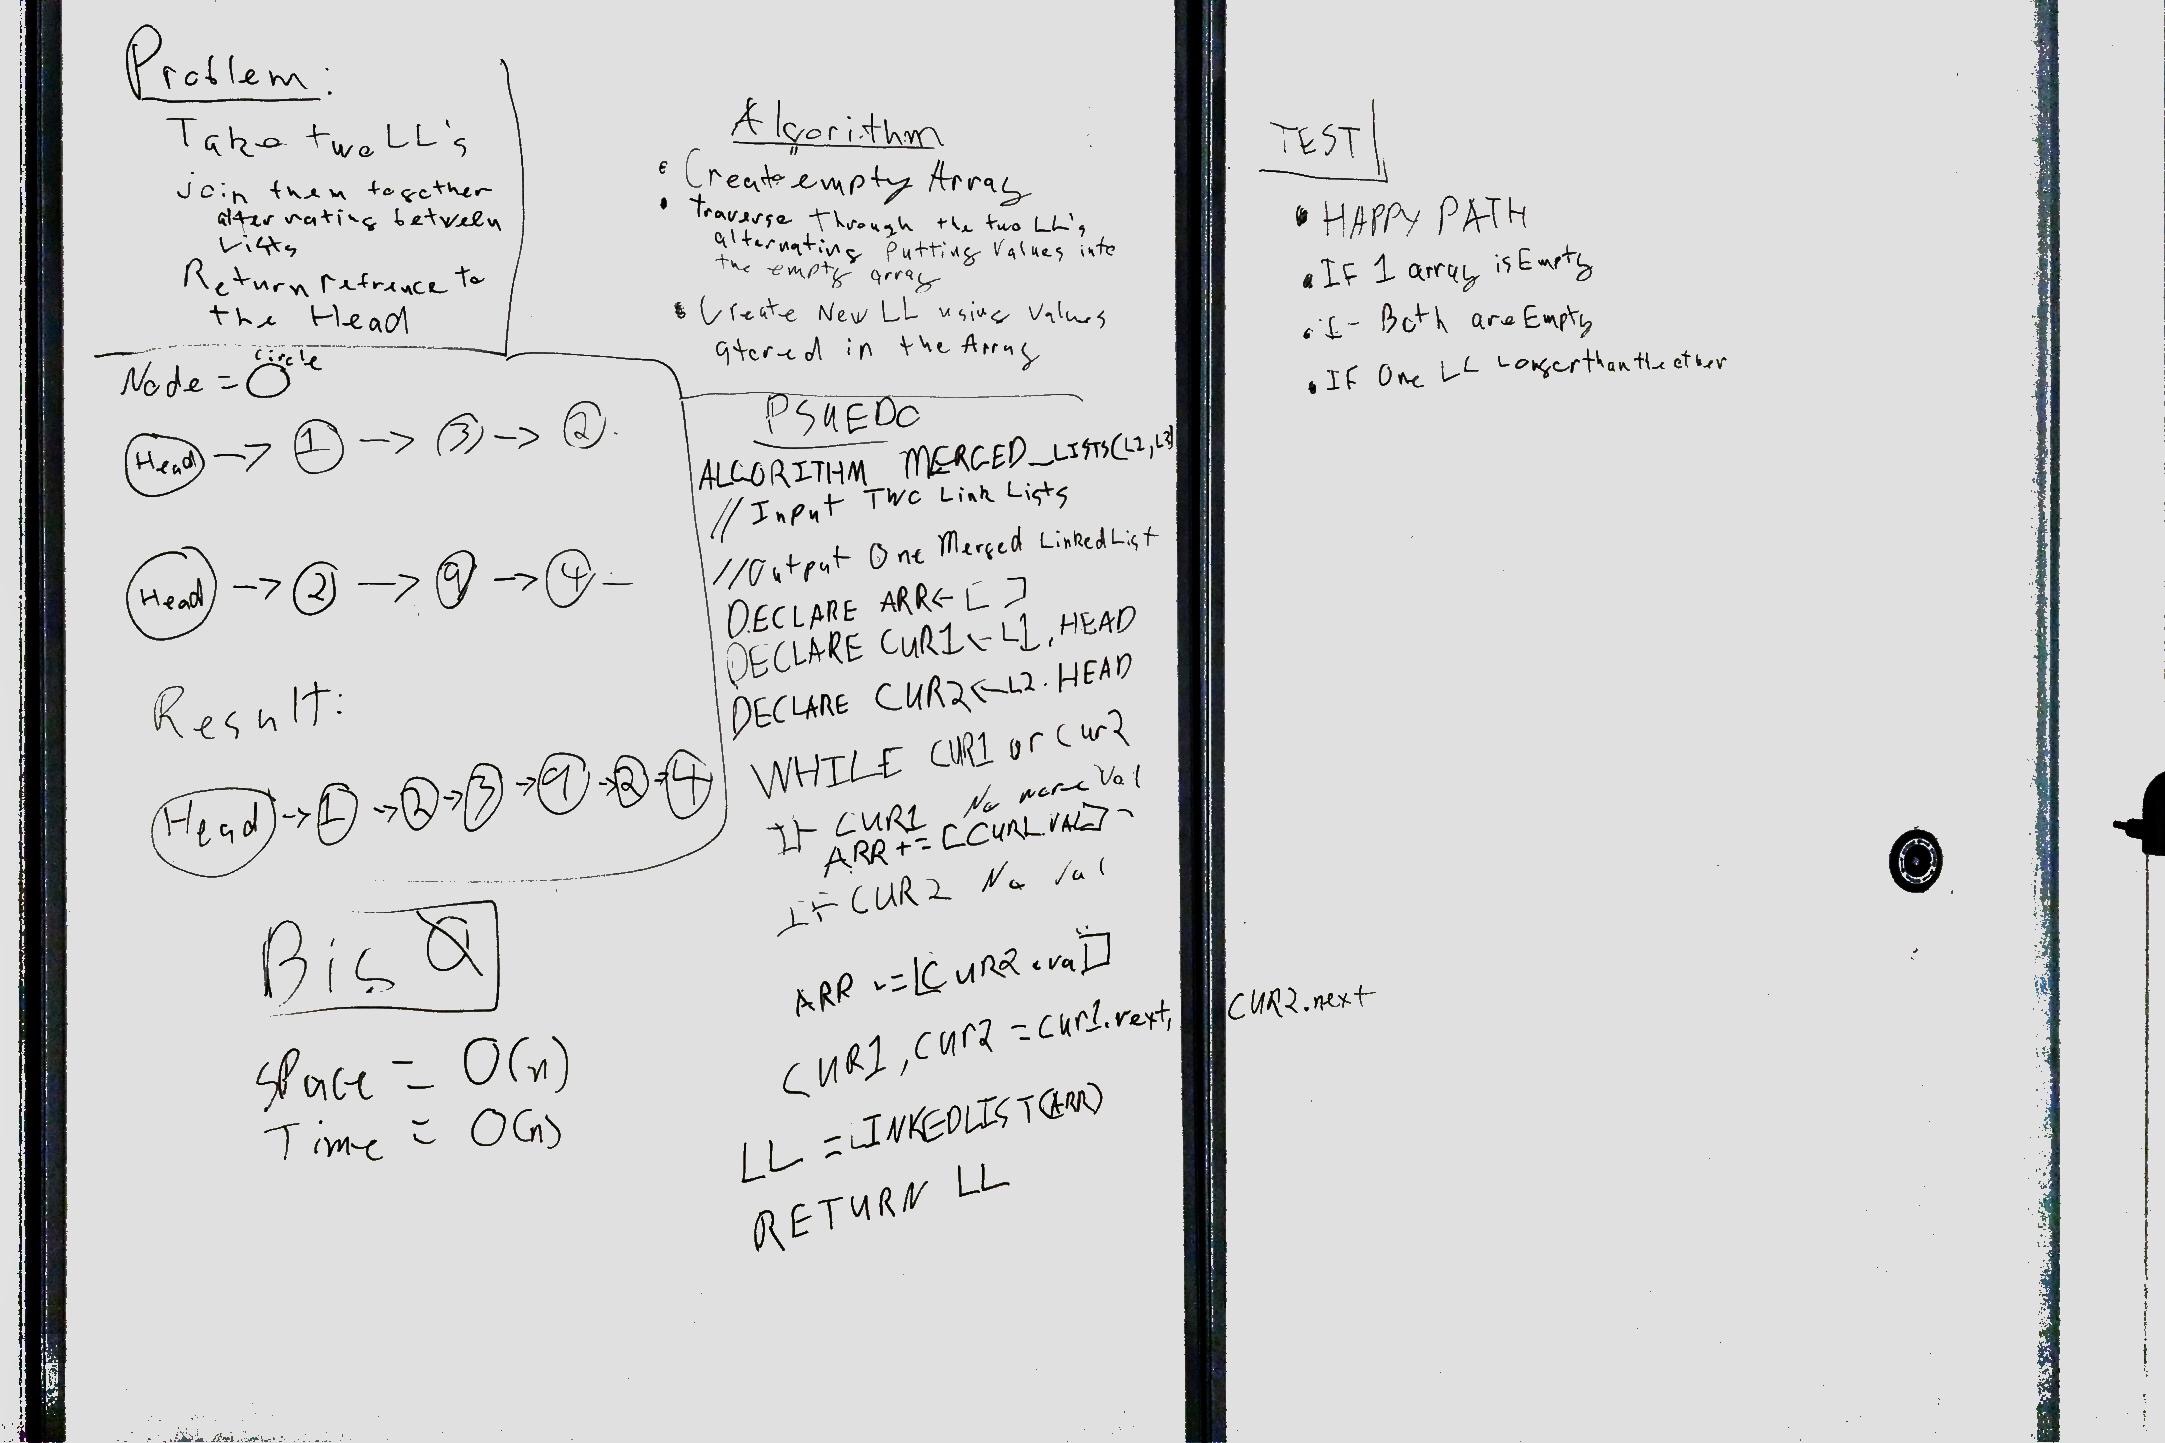 Problem:
Take two LL's
join them together
alternating between
Lists
Return refrence to
the Head
Node = Circle
Head -> 1 -> 3 -> 2
Head -> 2 -> 9 -> 4 -
Result:
Head -> 1 -> 2 -> 3 -> 9 -> 2 -> 4
Big O
Space = O(n)
Time = O(n)
Algorithm
• Create empty Array
• traverse through the two LL's
alternating Putting Values into
the empty array
• Create New LL using Values
stored in the Array
PSUEDO
ALGORITHM MERGED_LISTS(L2, L3)
// Input TWO Link Lists
// Output One Merged LinkedList
DECLARE ARR <- [ ]
DECLARE CUR1 <- L1.HEAD
DECLARE CUR2 <- L2.HEAD
WHILE CUR1 or Cur2
IF CUR1 No more Val
ARR += [CUR1.VAL]
IF CUR2 No Val
ARR += [CUR2.val]
CUR1, CUR2 = CUR1.next, CUR2.next
LL = LINKEDLIST(ARR)
RETURN LL
TEST
• HAPPY PATH
• IF 1 array is Empty
• I- Both are Empty
• IF One LL Longer than the other